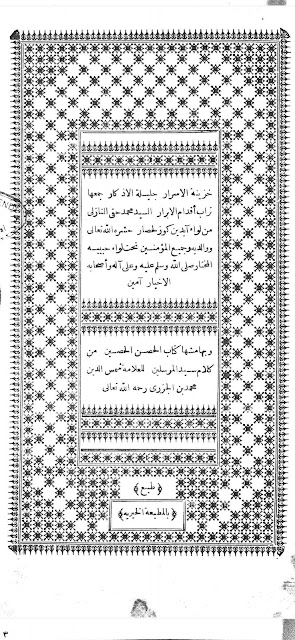 خزينة الاسرار جليلة الاذكار جمعها
تراب أقدام الابرار السيد محمد حقى النازلى
من لواء آيدين كوزلحصار حشره الله تعالى
ووالديه وجميع المؤمنين تحت لواء حبيبه
المختار صلى الله وسلم عليه وعلى آله وأصحابه
الاخيار آمين
وبهامشها كتاب الحصن الحصين من
كلام سيد المرسلين للعلامة شمس الدين
محمد بن الجزرى رحمه الله تعالى
﴿طبع﴾
﴿بالمطبعة الخيرية﴾
٣